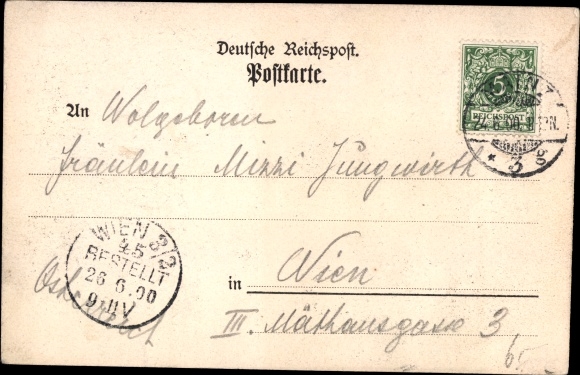 Deutsche Reichspost.
Postkarte.
5
REICHSPOST
24.6.00.
3
An Wolgeboren
Fräulein Mizzi Jungwirth
WIEN 3/2
45
BESTELLT
26 6.00
9.IIV
in Wien
Österreich
III. Mathausgasse 3